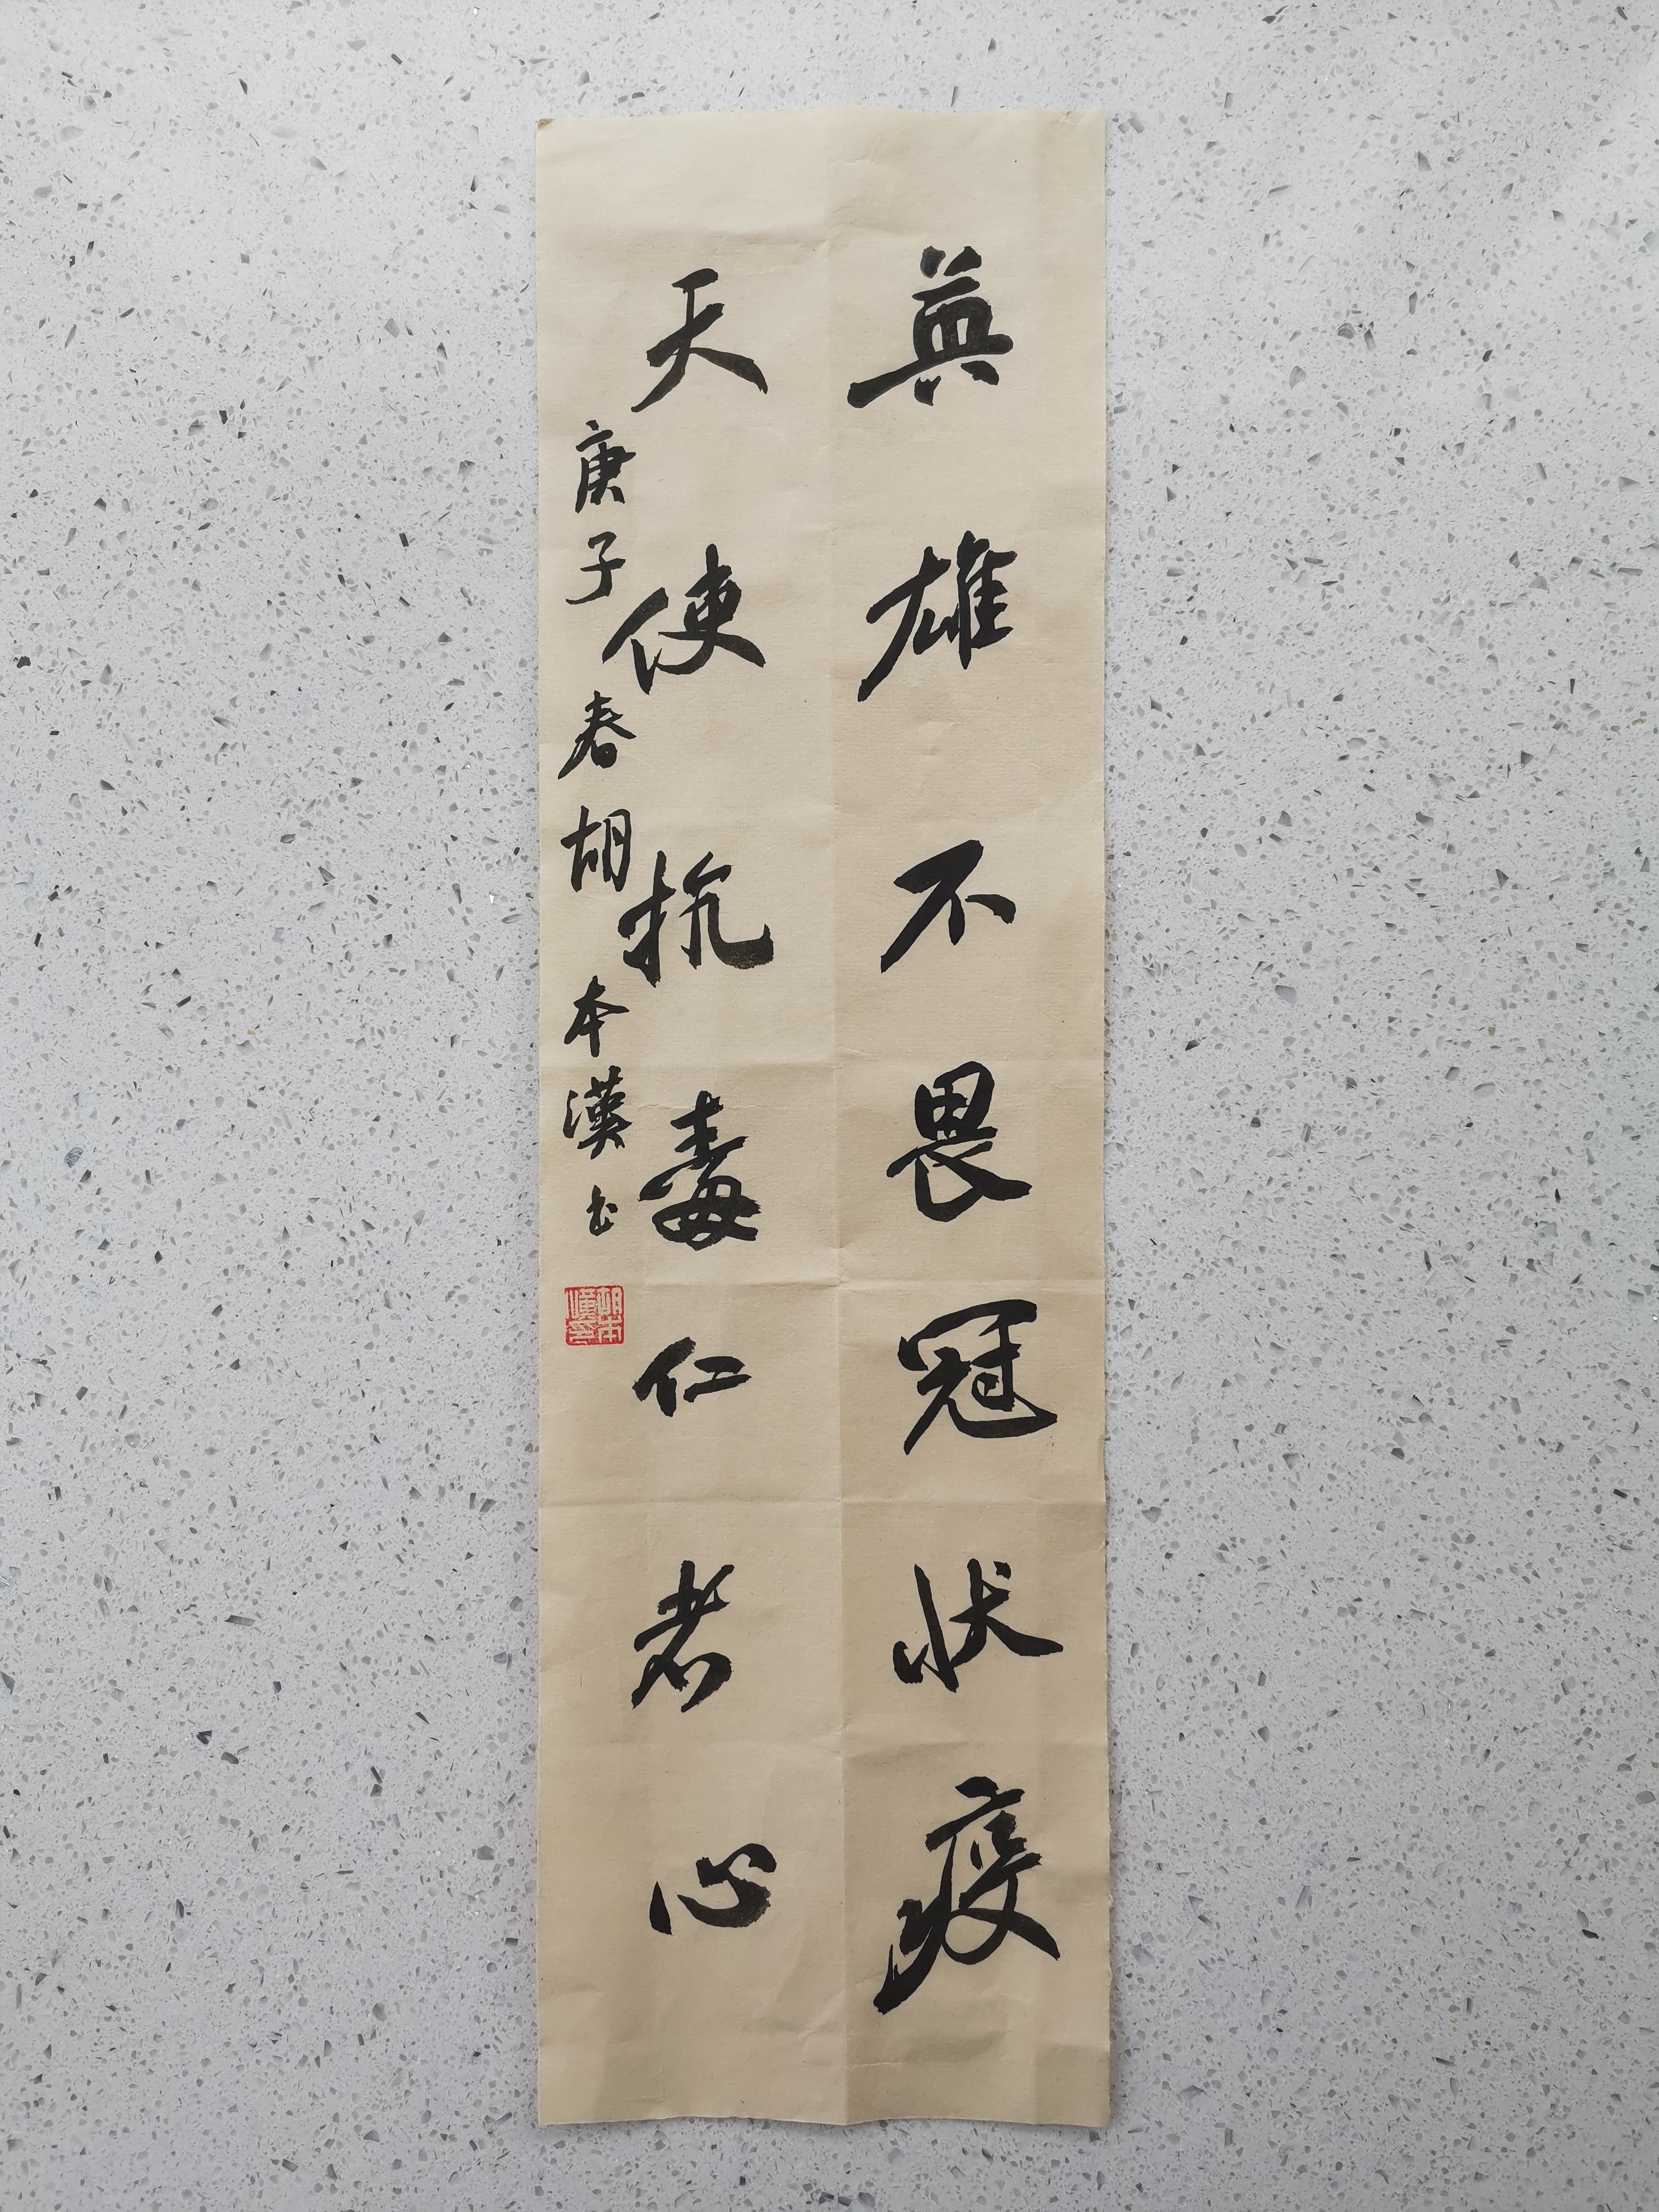 英雄不畏冠状疫
天使抗毒仁者心
庚子春胡本漢书
胡本漢印